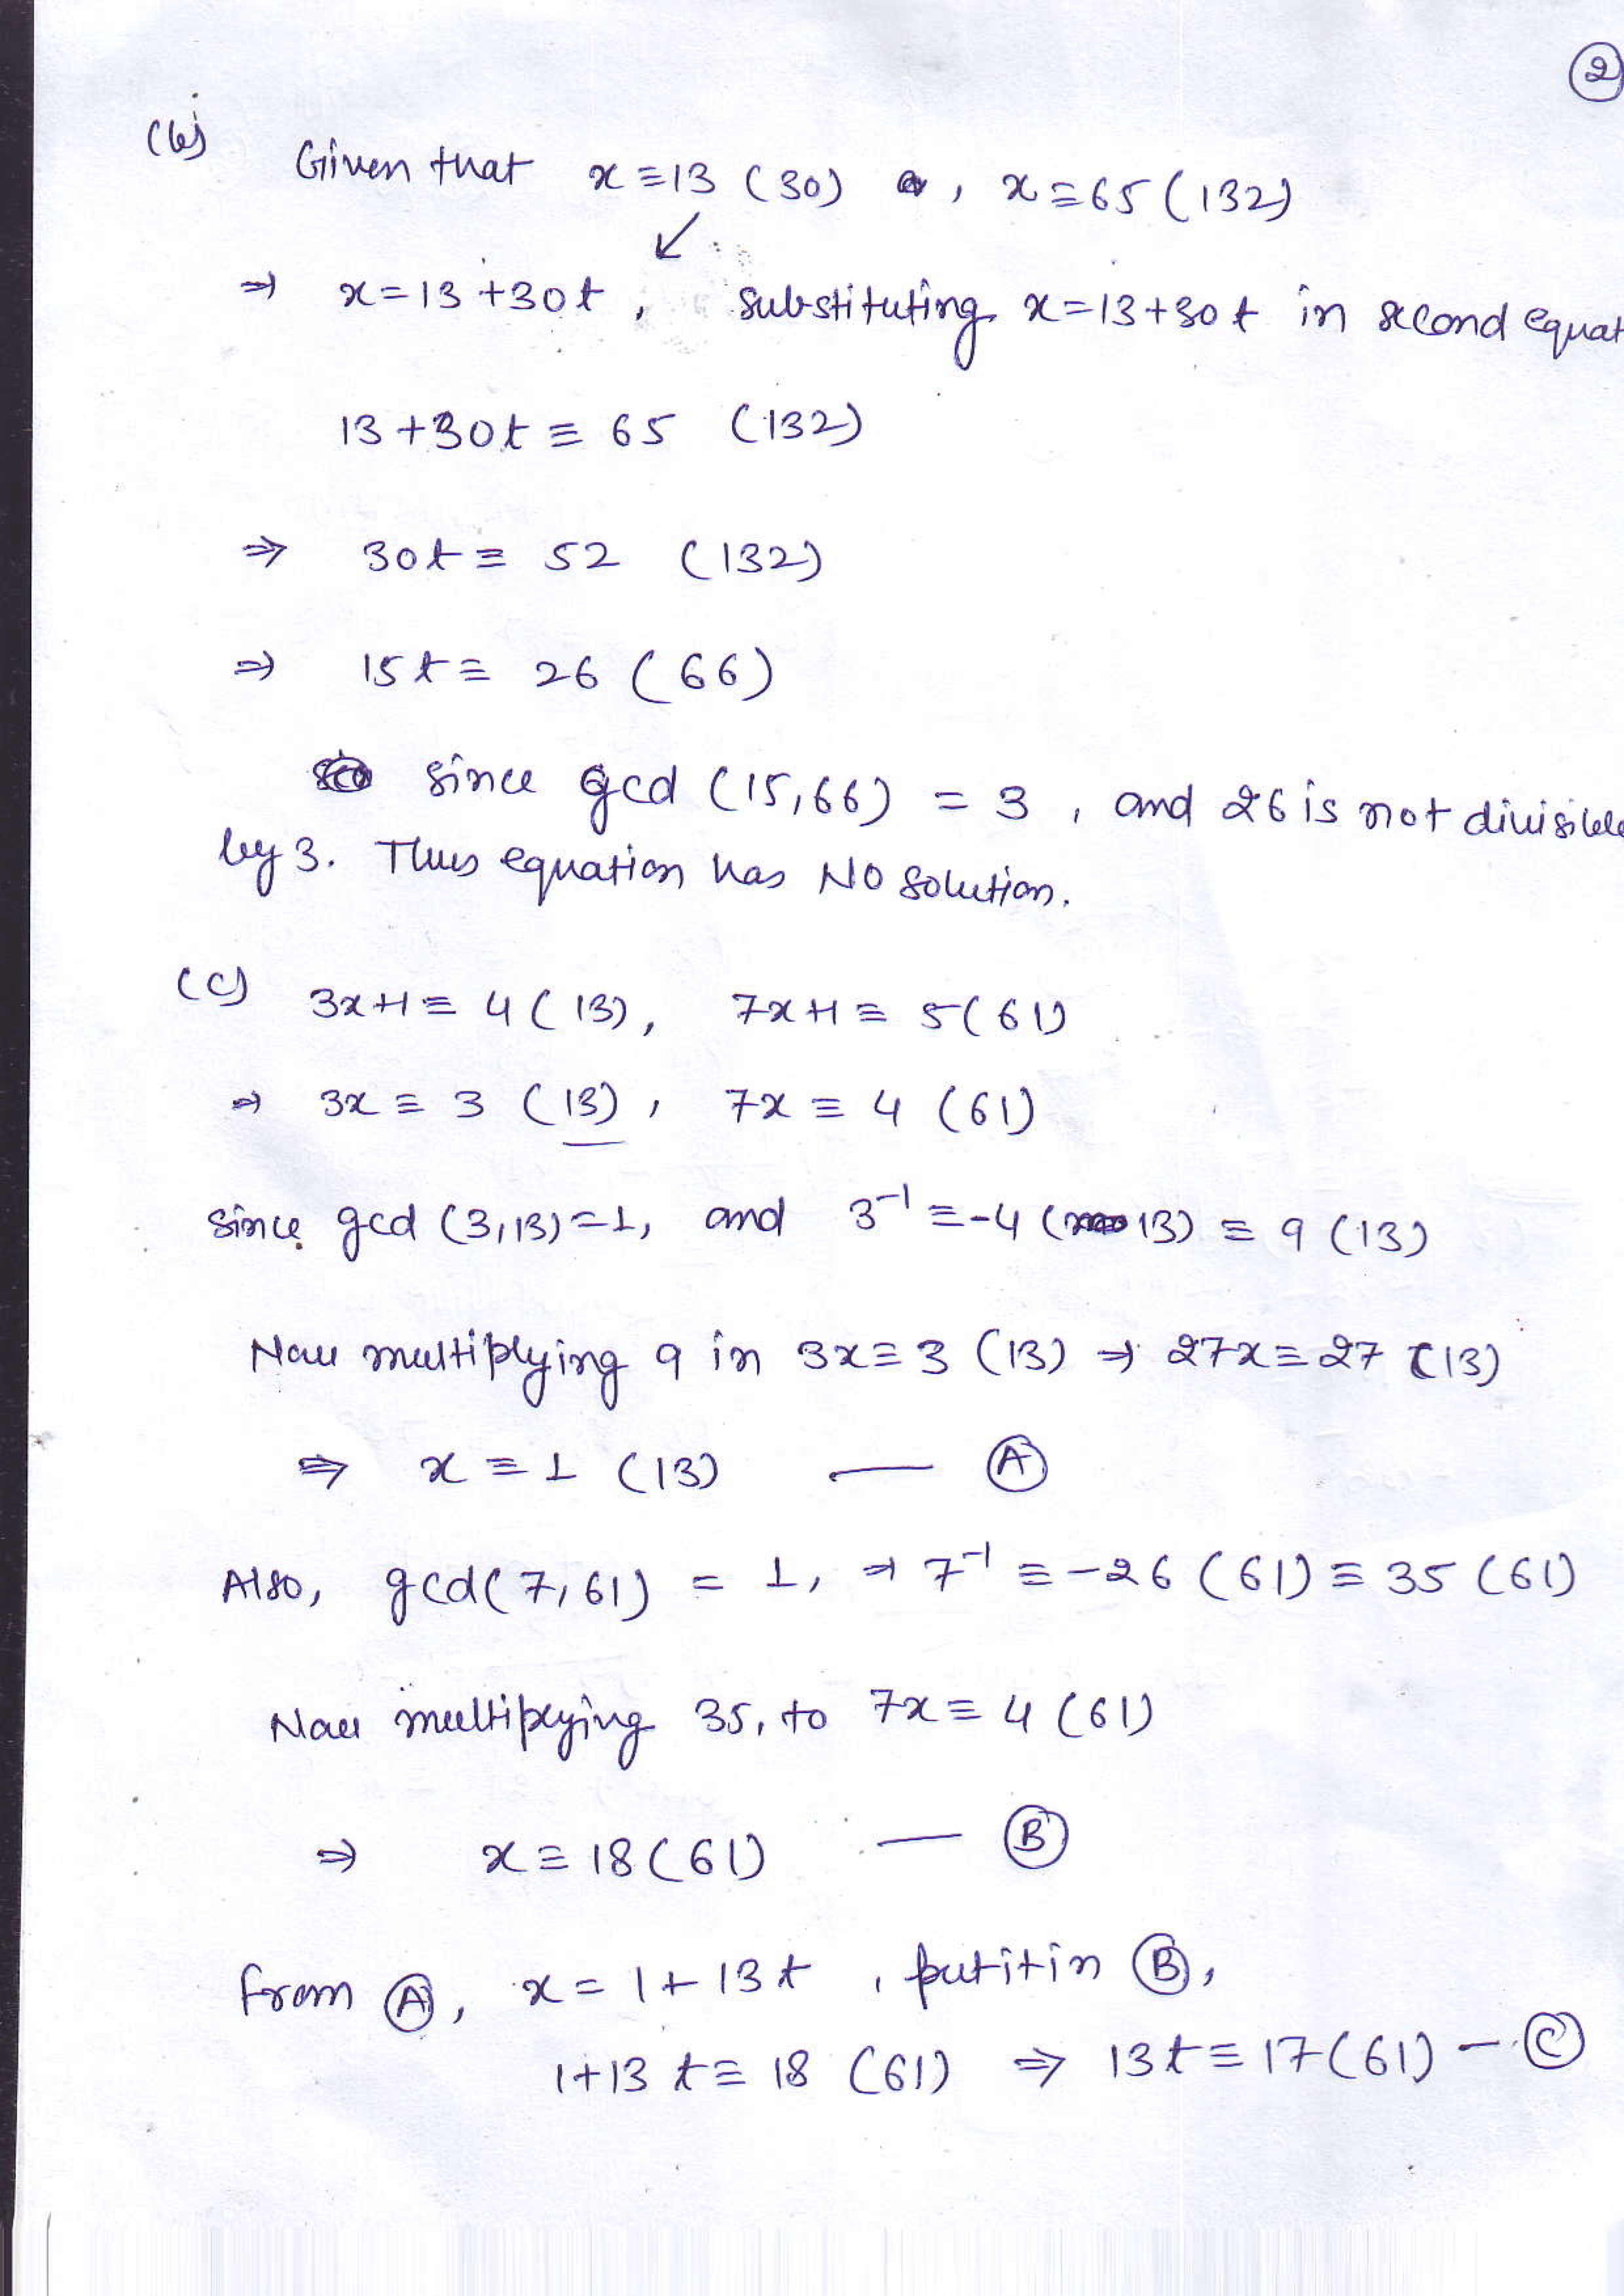 2
(b) Given that x ≡ 13 (30) , x ≡ 65 (132)
⇒ x = 13 + 30t , substituting x = 13 + 30t in second equat
13 + 30t ≡ 65 (132)
⇒ 30t ≡ 52 (132)
⇒ 15t ≡ 26 (66)
since gcd (15,66) = 3 , and 26 is not divisible
by 3. Thus equation has NO solution.
(c) 3x+1 ≡ 4 (13), 7x+1 ≡ 5 (61)
⇒ 3x ≡ 3 (13) , 7x ≡ 4 (61)
since gcd (3,13) = 1, and 3⁻¹ ≡ -4 (13) ≡ 9 (13)
Now multiplying 9 in 3x ≡ 3 (13) ⇒ 27x ≡ 27 (13)
⇒ x ≡ 1 (13) — A
Also, gcd(7,61) = 1, ⇒ 7⁻¹ ≡ -26 (61) ≡ 35 (61)
Now multiplying 35, to 7x ≡ 4 (61)
⇒ x ≡ 18 (61) — B
from A, x = 1 + 13t , put it in B,
1+13t ≡ 18 (61) ⇒ 13t ≡ 17 (61) — C